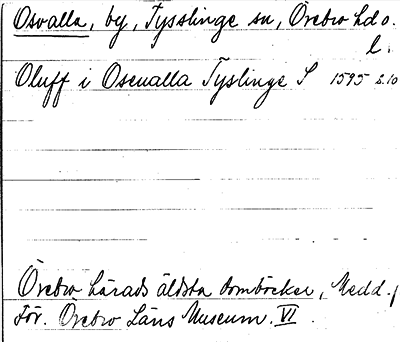 Osvalla, by, Tysslinge sn, Örebro hd o.
l.
Oluff i Oseualla Tyslinge S 1595 s. 10
Örebro härads äldsta domböcker, Medd. f
För. Örebro Läns Museum. VI.